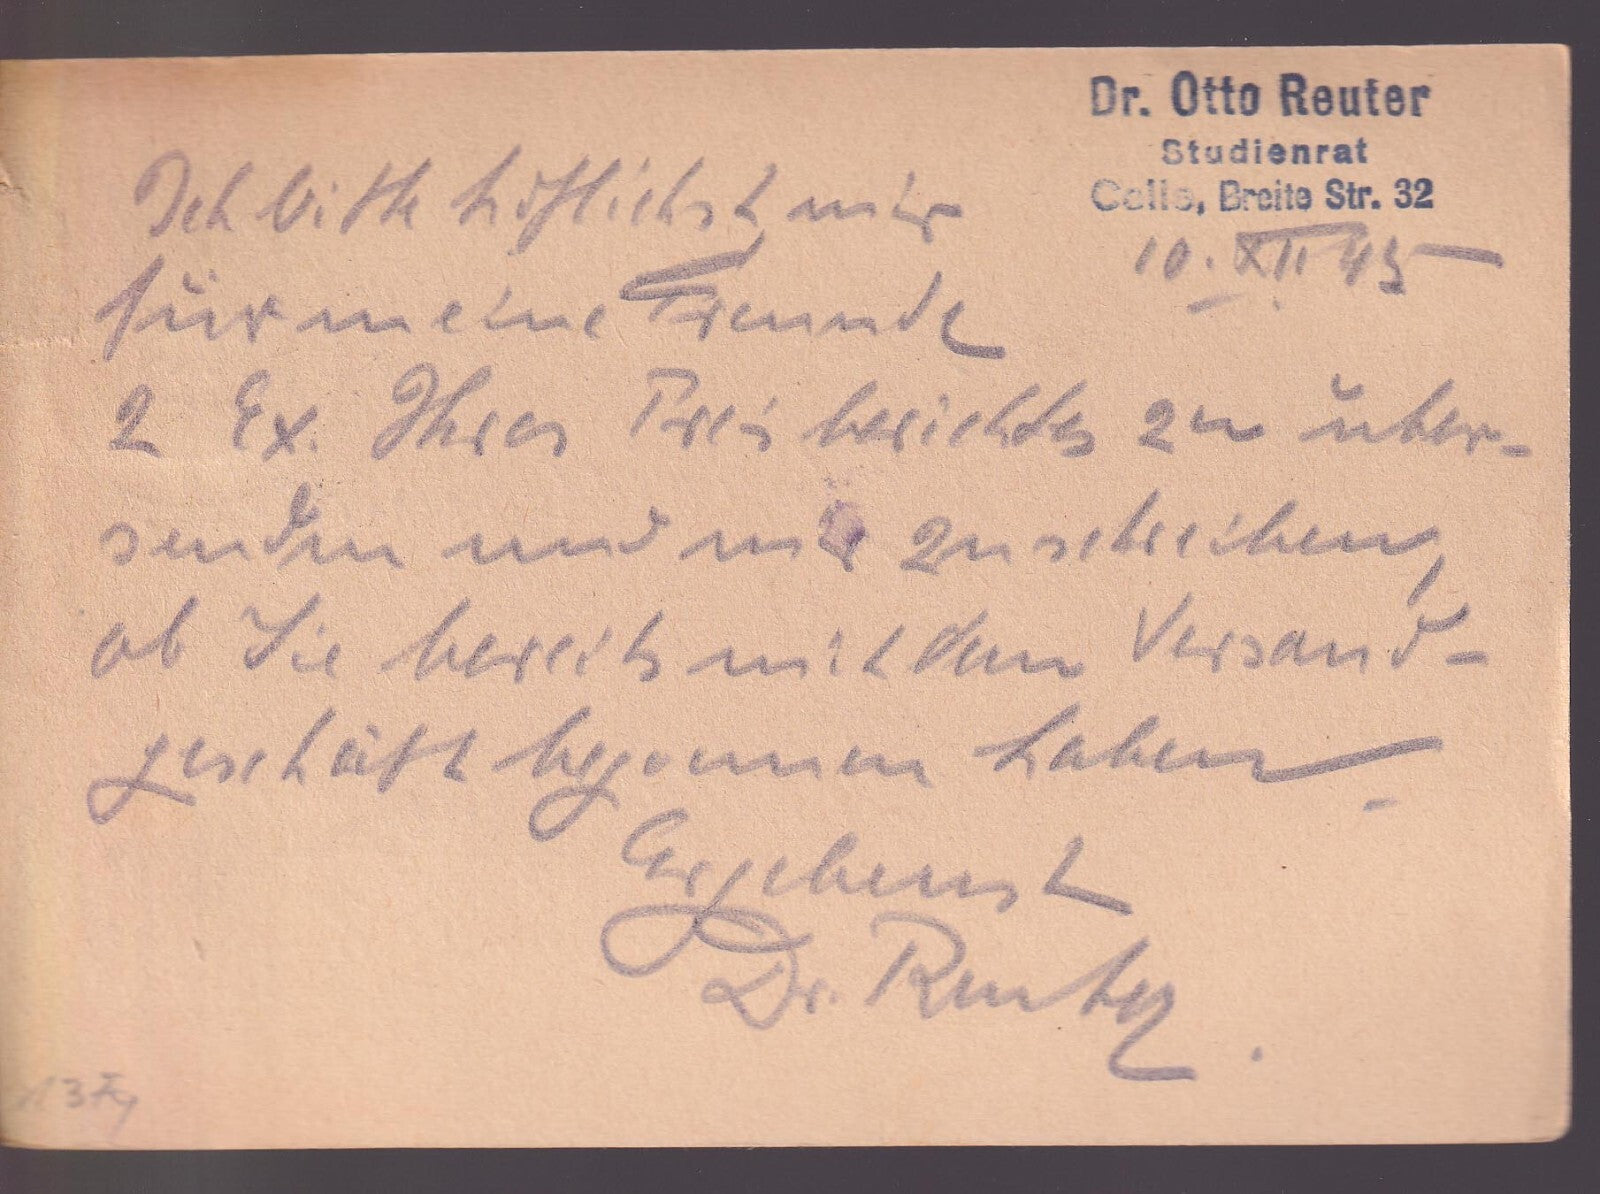 Dr. Otto Reuter
Studienrat
Celle, Breite Str. 32
10. XII 45
Ich bitte höflichst, mir
für meine Freunde
2 Ex. Ihres Preisberichtes zu über-
senden und mir zu schreiben,
ob Sie bereits mit dem Versand-
geschäft begonnen haben.
Ergebenst
Dr. Reuter